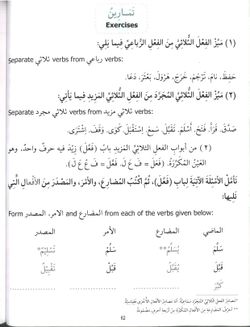 تَمَارِيْنُ
Exercises
(١) مَيِّزِ الفِعْلَ الثُّلَاثِيَّ مِنَ الفِعْلِ الرُّبَاعِيِّ فِيمَا يَلِي:
Separate ثلاثي verbs from رباعي verbs:
حَفِظَ، نَامَ، تَرْجَمَ، خَرَجَ، هَرْوَلَ، بَعْثَرَ، دَعَا.
(٢) مَيِّزِ الفِعْلَ الثُّلَاثِيَّ المُجَرَّدَ مِنَ الفِعْلِ الثُّلَاثِيِّ المَزِيدِ فِيمَا يَأْتِي:
Separate ثلاثي مجرد verbs from ثلاثي مزيد verbs:
صَدَّقَ، قَرَأَ، فَتَحَ، أَسْلَمَ، تَقَبَّلَ، سَمِعَ، اِسْتَقْبَلَ، كَوَى، وَقَفَ، اِشْتَرَى.
(٢) من أبواب الفعل الثلاثيِّ المَزيدِ بابُ (فَعَّلَ) زِيدَ فيه حرفٌ واحدٌ، وهو
العَيْنُ المُكَرَّرَةُ. (فَعَّلَ = فَ عْ عَ لَ).
تَأَمَّلِ الأَمْثِلَةَ الآتِيَةَ لِبابِ (فَعَّلَ)، ثُمَّ اكْتُبِ المُضَارِعَ، والأَمْرَ، والمَصْدَرَ مِنَ الأَفْعَالِ الَّتِي
تَلِيهَا:
Form المضارع and الامر، المصدر from each of the verbs given below:
الماضي المضارع الأمر المصدر
سَلَّمَ يُسَلِّمُ سَلِّمْ تَسْلِيمٌ
قَبَّلَ يُقَبِّلُ قَبِّلْ تَقْبِيْلٌ
كَبَّرَ
٤٢